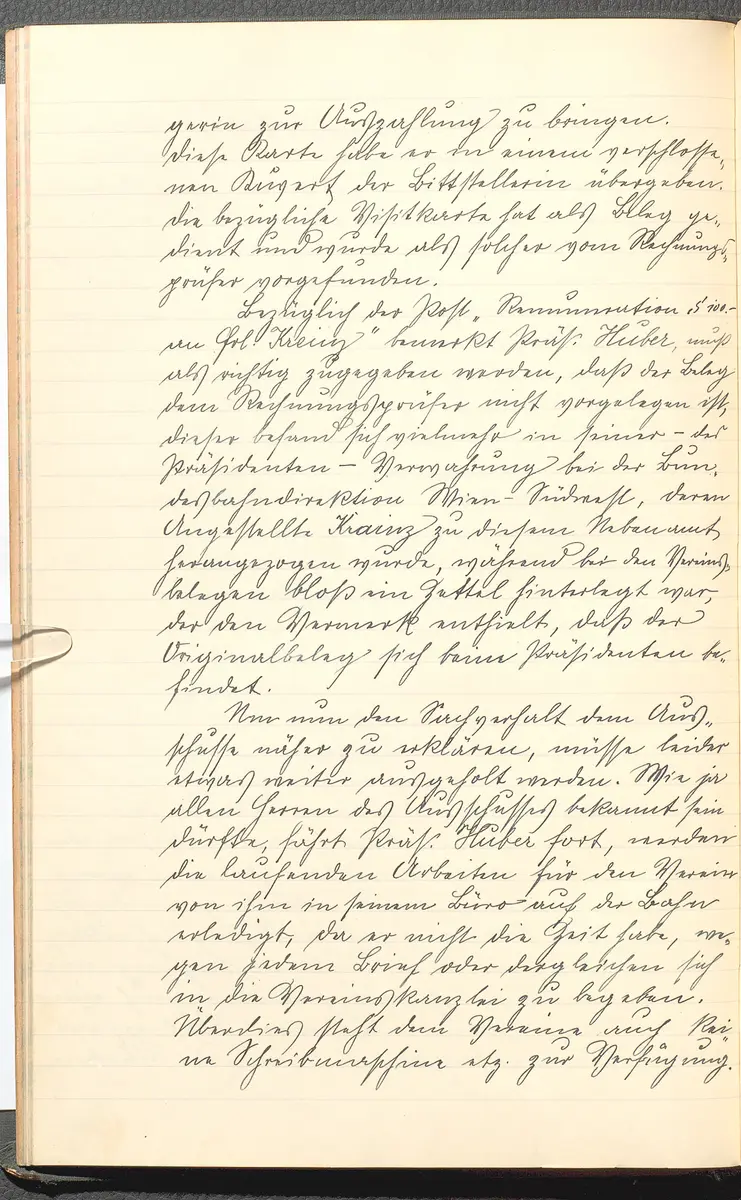 gerin zur Auszahlung zu bringen.
Diese Karte habe er in einem verschlosse„
nen Kuvert der Bittstellerin übergeben.
Die bezügliche Visitkarte hat als Beleg ge„
dient und wurde als solcher vom Rechnungs„
prüfer vorgefunden.
Bezüglich der Post „Remuneration S 100.-
an Frl. Krainz" bemerkt Präs. Huber, muß
als richtig zugegeben werden, daß der Beleg
dem Rechnungsprüfer nicht vorgelegen ist,
dieser befand sich vielmehr in seiner - des
Präsidenten - Verwahrung bei der Bun„
desbahndirektion Wien-Südwest, deren
Angestellte Krainz zu diesem Nebenamt
herangezogen wurde, während bei den Vereins„
belegen bloß ein Zettel hinterlegt war,
der den Vermerk enthielt, daß der
Originalbeleg sich beim Präsidenten be„
findet.
Um nun den Sachverhalt dem Aus„
schusse näher zu erklären, müsse leider
etwas weiter ausgeholt werden. Wie ja
allen Herren des Ausschusses bekannt sein
dürfte, fährt Präs. Huber fort, werden
die laufenden Arbeiten für den Verein
von ihm in seinem Büro auf der Bahn
erledigt, da er nicht die Zeit habe, we„
gen jedem Brief oder dergleichen sich
in die Vereinskanzlei zu begeben.
Überdies steht dem Vereine auch kei
ne Schreibmaschine etz. zur Verfügung.